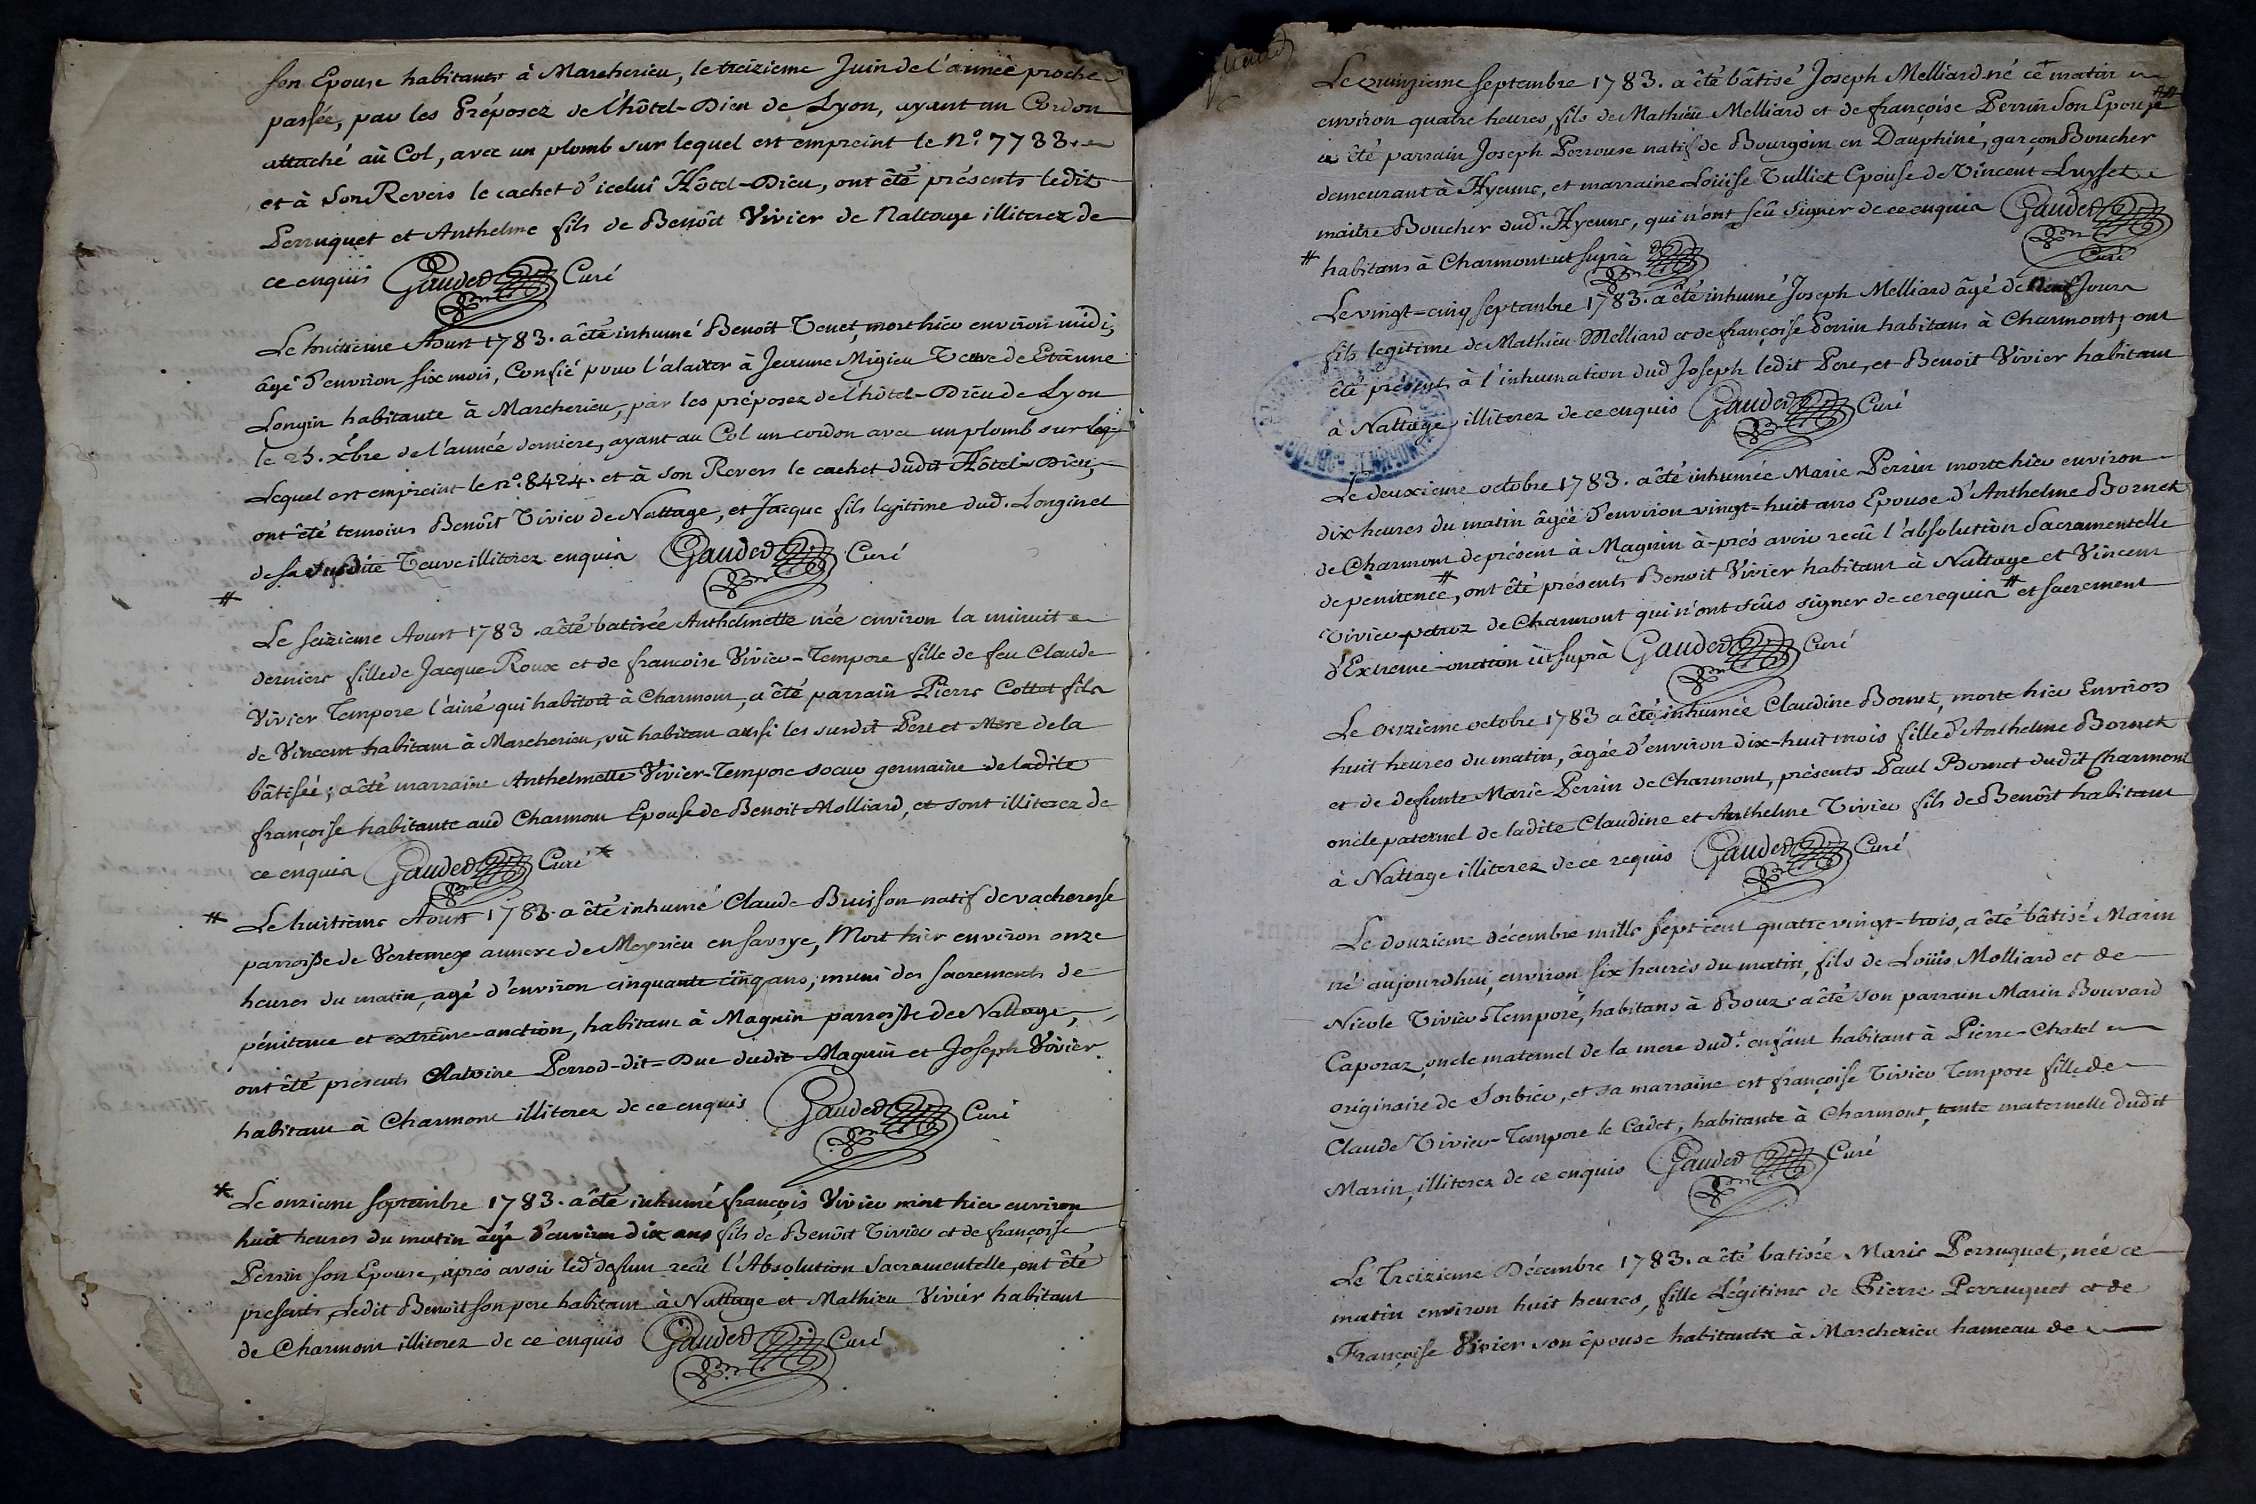 son Epouse habitants à Marcherieu, le treizieme Juin de l'année proche
passée, par les Préposez de l'hôtel-Dieu de Lyon, ayant un Cordon
attaché aû Col, avec un plomb sur lequel est empreint le n.º 7788.
et à son Revers le cachet d'icelui Hôtel-Dieu, ont êté présents ledit
Perruquet et Anthelme fils de Benoît Vivier de Nattage illiterez de
ce enquis Gauded Curé
Le huitieme Aoust 1783. a êté inhumé Benoît Tenet, mort hier environ midi,
âgé d'environ six mois, Confié pour l'alaiter à Jeanne Migieu Veuve de Etienne
Longin habitante à Marcherieu, par les préposez de l'hôtel-Dieu de Lyon
le 25. xbre de l'année derniere, ayant au Col un cordon avec un plomb sur
Lequel est empreint le n.º 8424. et à son Revers le cachet dudit Hôtel-Dieu,
ont êté temoins Benoît Vivier de Nattage, et Jacque fils legitime dud. Longin et
de sa susdite Veuve illiterez enquis Gauded Curé
#
Le seizieme Aoust 1783. a êté batisée Anthelmette née environ la minuit
derniere fille de Jacque Roux et de francoise Vivier-Tempore fille de feu Claude
Vivier Tempore l'ainé qui habitoit à Charmont, a êté parrain Pierre Cottet fils
de Vincent habitant à Marcherieu, où habitent aussi les susdit Pere et Mere de la
bâtisée; a êté marraine Anthelmette Vivier-Tempore soeur germaine de ladite
françoise habitante aud Charmont Epouse de Benoit Molliard, et sont illiterez de
ce enquis Gauded Curé *
# Le huitieme Aoust 1783. a êté inhumé Claude Buisson natif de vacheresse
parroisse de Vertemex annexe de Meyrieu en savoye, Mort hier environ onze
heures du matin, agé d'environ cinquante cinq ans, muni des sacrements de
pénitence et extrême-onction, habitant à Magnin parroisse de Nattage,
ont êté présents Antoine Perrod-dit-Duc dudit Magnin et Joseph Vivier
habitant à Charmont illiterez de ce enquis Gauded Curé
* Le onzieme septembre 1783. a êté inhumé françois Vivier mort hier environ
huit heures du matin âgé d'environ dix ans fils de Benôit Vivier et de françoise
Perrin son Epouse, apres avoir led. defunt reçû l'Absolution Sacramentelle, ont êté
presents Ledit Benoit son pere habitant à Nattage et Mathieu Vivier habitant
de Charmont illiterez de ce enquis Gauded Curé
Le Quinzieme septembre 1783. a êté bâtisé Joseph Melliard né ce matin
environ quatre heures, fils de Mathieu Melliard et de françoise Perrin son Epouse #
a êté parrain Joseph Perrouse natif de Bourgoin en Dauphiné, garçon Boucher
demeurant à Hyenne, et marraine Loüise Tulliet Epouse de Vincent Luyset
maître Boucher dud. Hyenne, qui n'ont sçû signer de ce enquis Gauded
Curé
# habitans à Charmont ut suprà
Le vingt-cinq septembre 1783. a êté inhumé Joseph Melliard âgé de neuf jours
fils legitime de Mathieu Melliard et de françoise Perrin habitans à Charmont; ont
êté présents à l'inhumation dud Joseph ledit Pere, et Benoit Vivier habitant
à Nattage illiterez de ce enquis Gauded Curé
Le deuxieme octobre 1783. a êté inhumée Marie Perrin morte hier environ
dix heures du matin âgée d'environ vingt-huit ans Epouse d'Anthelme Bornet
de Charmont de présent à Magnin à-prés avoir reçû l'absolution Sacramentelle
de penitence #, ont êté présents Benoit Vivier habitant à Nattage et Vincent
Vivier-petroz de Charmont qui n'ont sçûs signer de ce requis # et sacrement
d'Extreme-onction ût suprà Gauded Curé
Le onzieme octobre 1783 a êté inhumée Claudine Bornet, morte hier Environ
huit heures du matin, âgée d'environ dix-huit mois fille d'Anthelme Bornet
et de defunte Marie Perrin de Charmont, présents Paul Bornet dudit Charmont
oncle paternel de ladite Claudine et Anthelme Vivier fils de Benôit habitant
à Nattage illiterez de ce requis Gauded Curé
Le douzieme décembre mille sept cent quatre vingt-trois, a êté bâtisé Marin
né aujourdhui environ six heures du matin, fils de Loüis Molliard et de
Nicole Vivier Temporé, habitans à Bouz. a êté son parrain Marin Bouvard
Caporaz, oncle maternel de la mere dud. enfant habitant à Pierre-Chatel
originaire de Sorbier, et sa marraine est françoise Vivier Tempore fille de
Claude Vivier-Tempore le Cadet, habitante à Charmont, tante maternelle dudit
Marin, illiterez de ce enquis Gauded Curé
Le Treizieme Décembre 1783. a êté batisée Marie Perruquet, née ce
matin environ huit heures, fille Légitime de Pierre Perruquet et de
Françoise Vivier son épouse habitants à Marcherieu hameau de